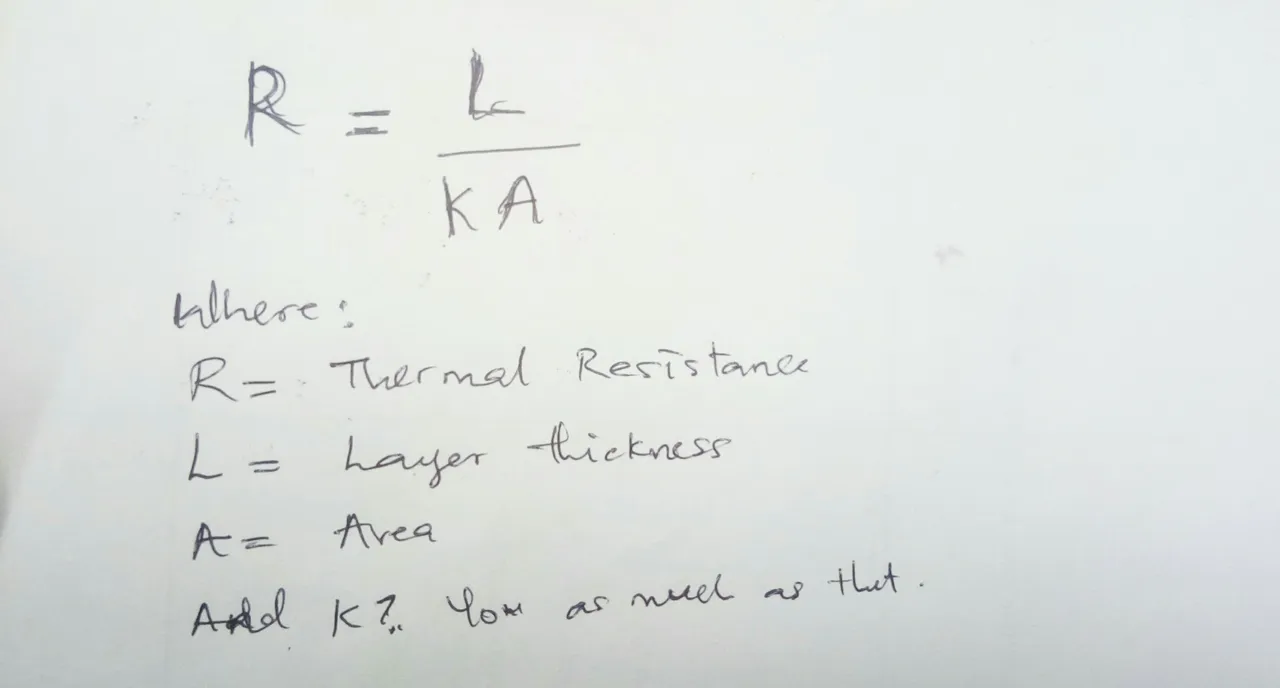 R = L
KA
Where:
R = Thermal Resistance
L = Layer thickness
A = Area
And K? You as much as that.